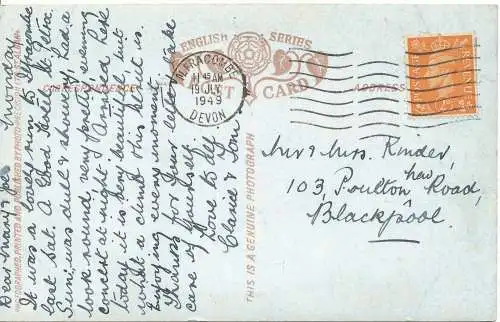 ENGLISH SERIES
POST CARD
CORRESPONDENCE
ADDRESS
ILFRACOMBE
11 45 AM
19 JLY
1949
DEVON
POSTAGE
REVENUE
THIS IS A GENUINE PHOTOGRAPH
PHOTOGRAPHED, PRINTED AND PUBLISHED BY
Monday
Dear Mary & Joe
It was a lovely run to Ilfracombe
last Sat. A Good Hotel. St. Petroc.
Sun: was dull & showery. Had a
look round, very pretty, evening
concert at night. Arrived here
today it is very beautiful but
what a climb this hill is.
Enjoying every moment.
Thanks for your letter, take
care of yourself.
Love to all
Clarice & Tom
Mr & Mrs. Kinder,
103, Poulton Road,
Blackpool.